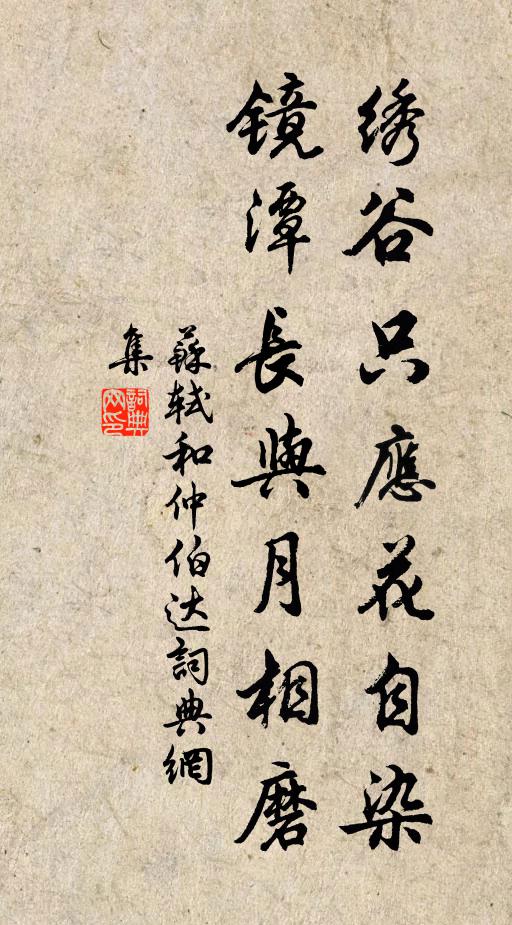 绣谷只應花自染
镜潭長與月相磨
蘇軾和仲伯达詞典網
集
詞典
网印